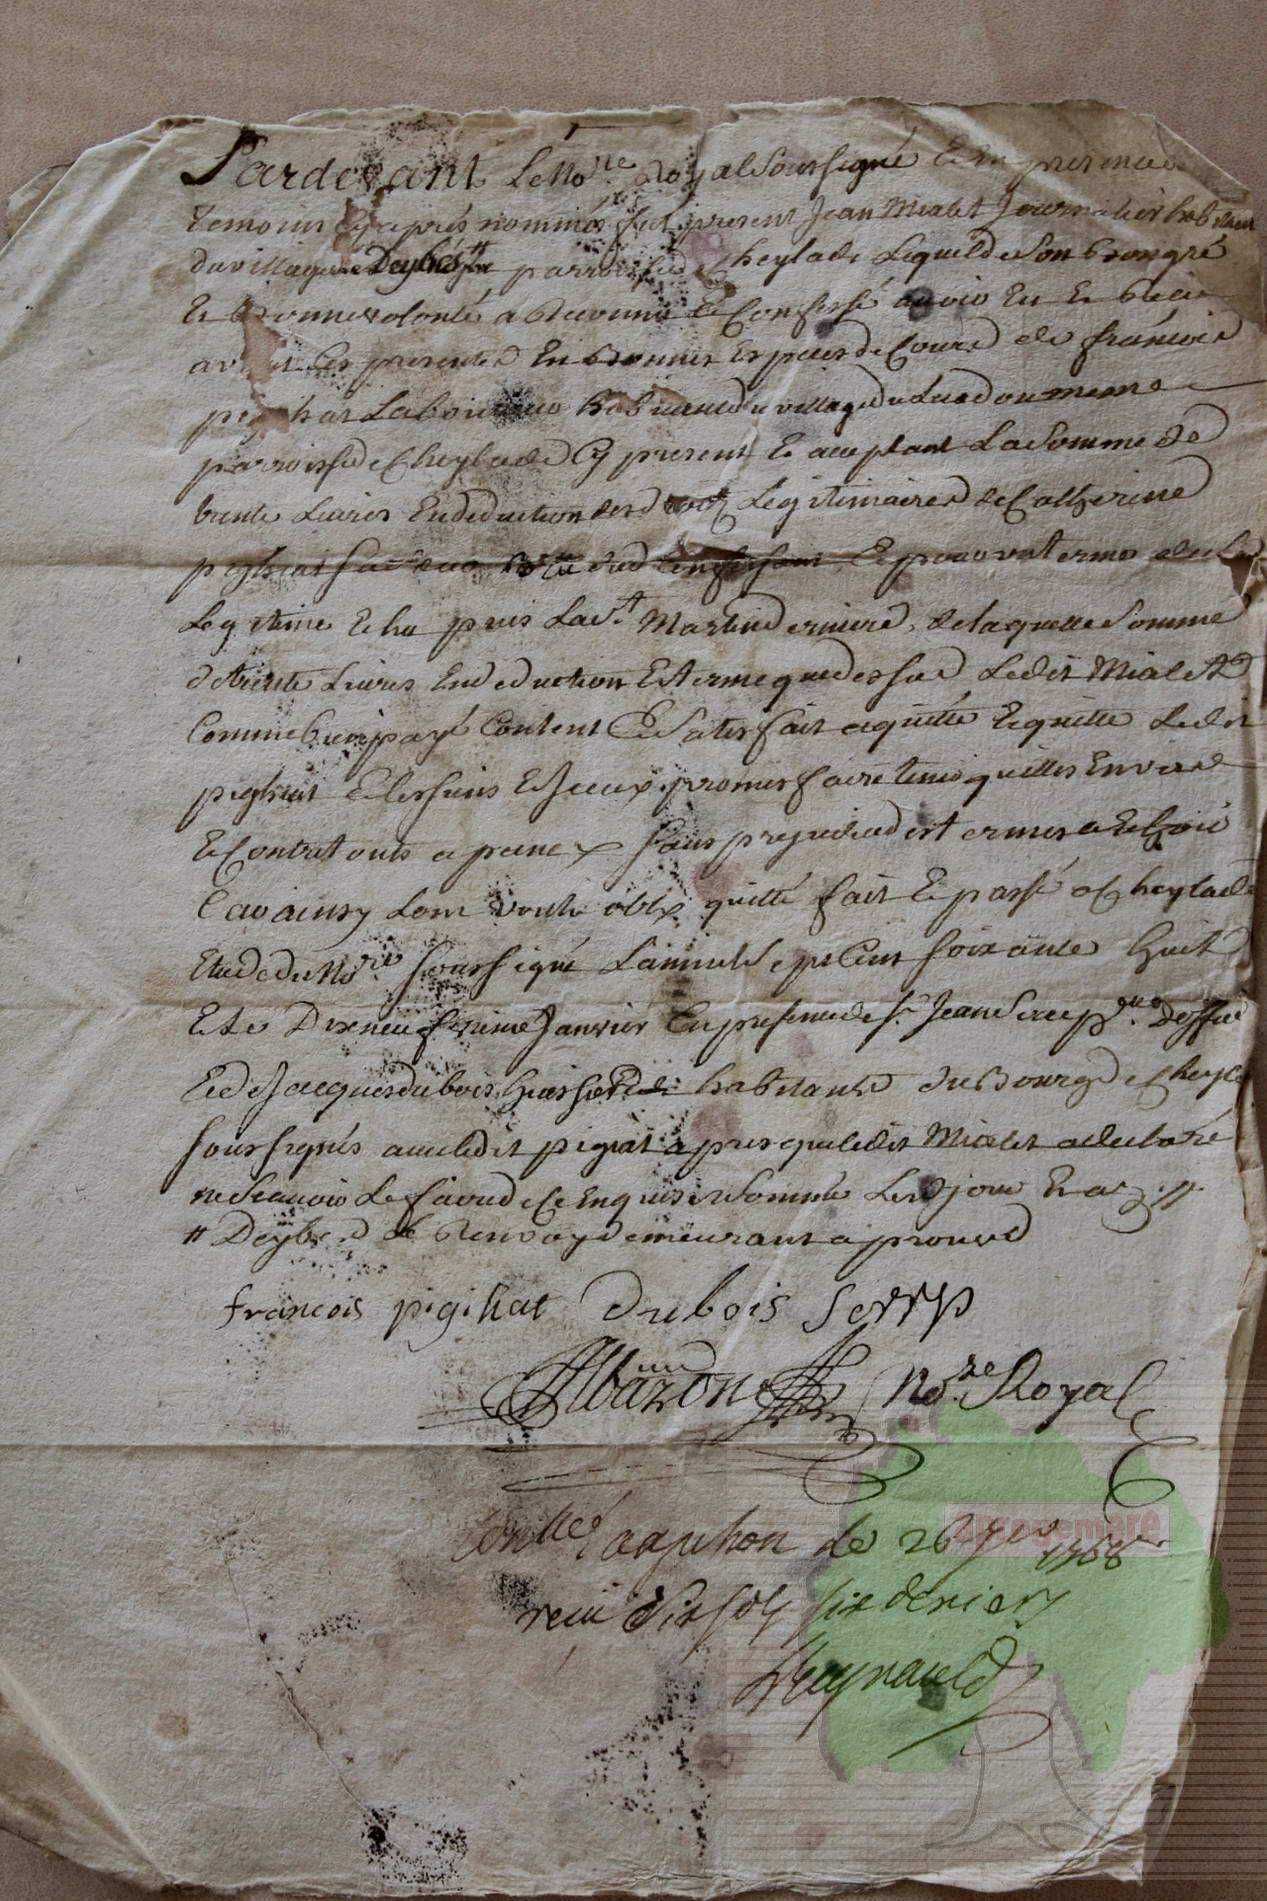 Pardevant Le No.re Royal Soussigné Et En presence
temoins Cy apres nommés fut present Jean Mialet Journalier habitant
du village de Deybés # parroisse de Cheylade Lequel de Son bon gré
Et bonne volonté a Reconnu Et Confessé avoir Eu Et Receu
avant Ces presentes En bonnes Especes de Cours de françois
pigihat Laboureur habitant du village du Luc du meme
parroisse de Cheylade Cy present Et acceptant La Somme de
trente Livres En deduction des droits Legitimaires de Catherine
pighiat Sa Et pour un terme de la
Legitime Echu puis La St Martin derniere, de laquelle Somme
de trente Livres En deduction Et terme que dessus Ledit Mialet
Comme bien payé Content Et Satisfait a quitté Et quitte Ledit
pighiat Et les Siens Et Iceux promis faire tenir quittes Envers
Et Contre touts a peine & Sans prejudice des termes a Echoir
Et avainsy Lom voulu obl& quitté fait Et passé a Cheylade
Etude du No.re Soussigné L'an mil Sept Cent Soixante huit
Et Le Dixneufvieme Janvier En presence de Sr Jean Serre
Et de Jacques dubois huissier habitants du Bourg de Cheylade
Soussignés avec ledit pigiat apres que ledit Mialet a declaré
ne Scavoir Le faire de Ce Enquis et Sommé Lesd jour Et an //
# Deybes le Renvoy demeurant aprouvé
francois pigihat Dubois Serre
Abazon No.re Royal
Conlle a apchon le 26 1768
recu Six Sols Six deniers
Reynauld
aprogemere